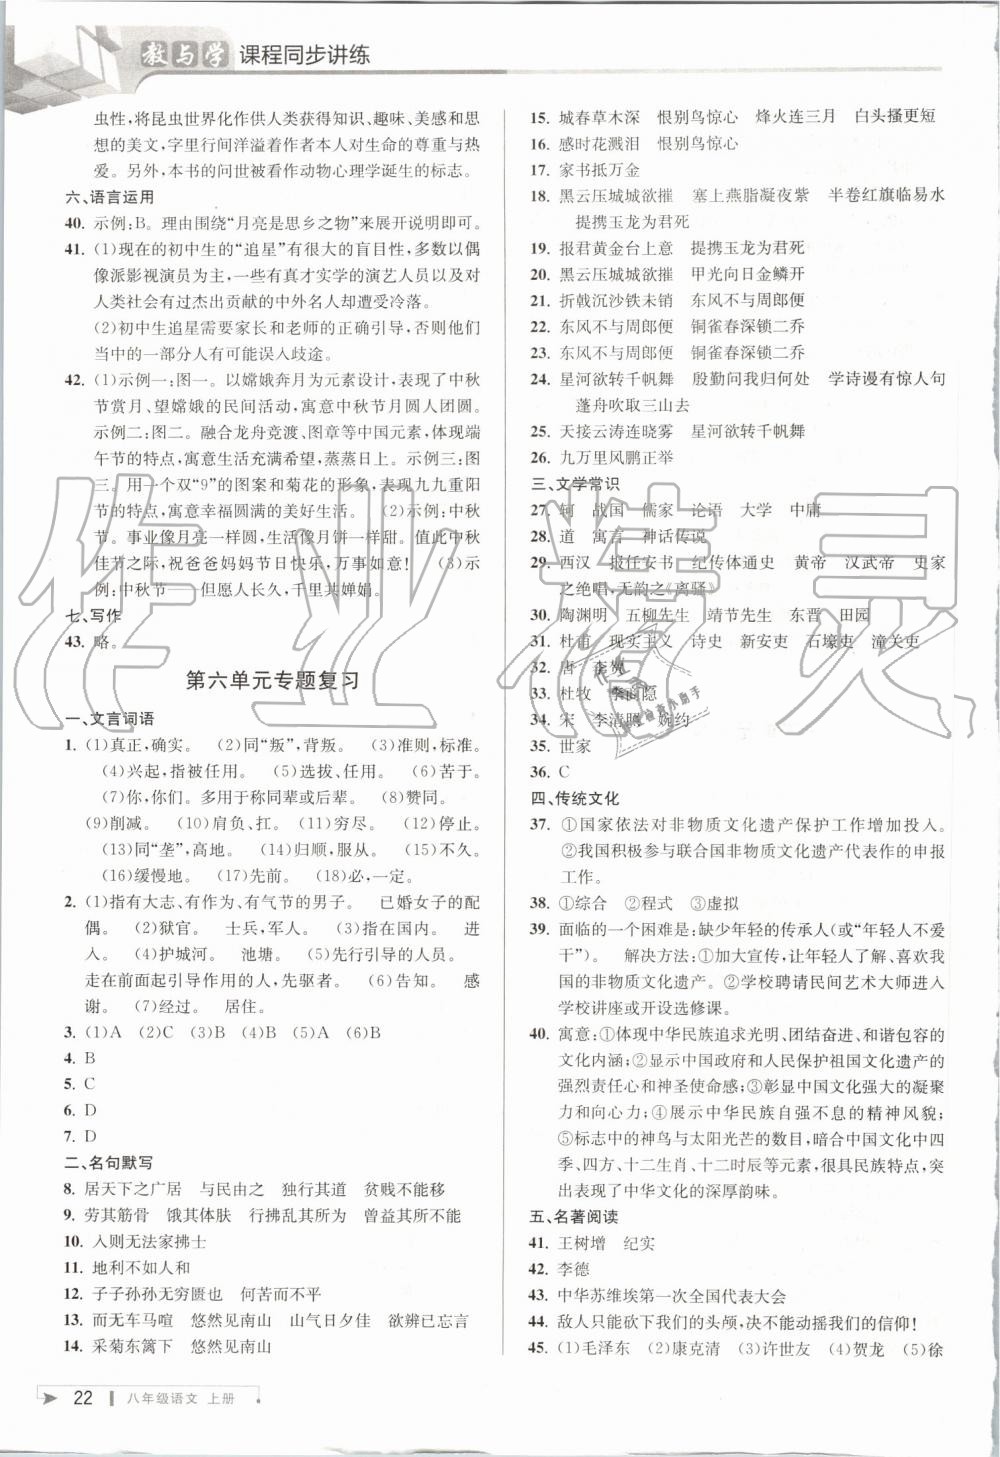 教与学 课程同步讲练
虫性,将昆虫世界化作供人类获得知识、趣味、美感和思
想的美文,字里行间洋溢着作者本人对生命的尊重与热
爱。另外,本书的问世被看作动物心理学诞生的标志。
六、语言运用
40. 示例:B。理由围绕“月亮是思乡之物”来展开说明即可。
41. (1)现在的初中生的“追星”有很大的盲目性,多数以偶
像派影视演员为主,一些有真才实学的演艺人员以及对
人类社会有过杰出贡献的中外名人却遭受冷落。
(2)初中生追星需要家长和老师的正确引导,否则他们
当中的一部分人有可能误入歧途。
42. (1)示例一:图一。以嫦娥奔月为元素设计,表现了中秋
节赏月、望嫦娥的民间活动,寓意中秋节月圆人团圆。
示例二:图二。融合龙舟竞渡、图章等中国元素,体现端
午节的特点,寓意生活充满希望,蒸蒸日上。示例三:图
三。用一个双“9”的图案和菊花的形象,表现九九重阳
节的特点,寓意幸福圆满的美好生活。 (2)示例:中秋
节。事业像月亮一样圆,生活像月饼一样甜。值此中秋
佳节之际,祝爸爸妈妈节日快乐,万事如意! (3)示
例:中秋节——但愿人长久,千里共婵娟。
七、写作
43. 略。
第六单元专题复习
一、文言词语
1. (1)真正,确实。 (2)同“叛”,背叛。 (3)准则,标准。
(4)兴起,指被任用。 (5)选拔、任用。 (6)苦于。
(7)你,你们。多用于称同辈或后辈。 (8)赞同。
(9)削减。 (10)肩负、扛。 (11)穷尽。 (12)停止。
(13)同“垄”,高地。 (14)归顺,服从。 (15)不久。
(16)缓慢地。 (17)先前。 (18)必,一定。
2. (1)指有大志、有作为、有气节的男子。 已婚女子的配
偶。 (2)狱官。 士兵,军人。 (3)指在国内。 进
入。 (4)护城河。 池塘。 (5)先行引导的人员。
走在前面起引导作用的人,这里指军队。 (6)告知。 感
谢。 (7)经过。 居住。
3. (1)A (2)C (3)B (4)B (5)A (6)B
4. B
5. C
6. D
7. D
二、名句默写
8. 居天下之广居 与民由之 独行其道 贫贱不能移
9. 劳其筋骨 饿其体肤 行拂乱其所为 曾益其所不能
10. 入则无法家拂士
11. 地利不如人和
12. 子子孙孙无穷匮也 何苦而不平
13. 而无车马喧 悠然见南山 山气日夕佳 欲辨已忘言
14. 采菊东篱下 悠然见南山
22 八年级语文 上册
15. 城春草木深 恨别鸟惊心 烽火连三月 白头搔更短
16. 感时花溅泪 恨别鸟惊心
17. 家书抵万金
18. 黑云压城城欲摧 塞上燕脂凝夜紫 半卷红旗临易水
提携玉龙为君死
19. 报君黄金台上意 提携玉龙为君死
20. 黑云压城城欲摧 甲光向日金鳞开
21. 折戟沉沙铁未销 东风不与周郎便
22. 东风不与周郎便 铜雀春深锁二乔
23. 东风不与周郎便 铜雀春深锁二乔
24. 星河欲转千帆舞 殷勤问我归何处 学诗谩有惊人句
蓬舟吹取三山去
25. 天接云涛连晓雾 星河欲转千帆舞
26. 九万里风鹏正举
三、文学常识
27. 轲 战国 儒家 论语 大学 中庸
28. 道 寓言 神话传说
29. 西汉 报任安书 纪传体通史 黄帝 汉武帝 史家
之绝唱,无韵之《离骚》
30. 陶渊明 五柳先生 靖节先生 东晋 田园
31. 杜甫 现实主义 诗史 新安吏 石壕吏 潼关吏
32. 唐 李贺
33. 杜牧 李商隐
34. 宋 李清照 婉约
35. 世家
36. C
四、传统文化
37. ①国家依法对非物质文化遗产保护工作增加投入。
②我国积极参与联合国非物质文化遗产代表作的申报
工作。
38. ①综合 ②程式 ③虚拟
39. 面临的一个困难是:缺少年轻的传承人(或“年轻人不爱
干”)。 解决方法:①加大宣传,让年轻人了解、喜欢我
国的非物质文化遗产。②学校聘请民间艺术大师进入
学校讲座或开设选修课。
40. 寓意:①体现中华民族追求光明、团结奋进、和谐包容的
文化内涵;②显示中国政府和人民保护祖国文化遗产的
强烈责任心和神圣使命感;③彰显中国文化强大的凝聚
力和向心力;④展示中华民族自强不息的精神风貌;
⑤标志中的神鸟与太阳光芒的数目,暗合中华文化中四
季、四方、十二生肖、十二时辰等元素,很具民族特点,突
出表现了中华文化的深厚韵味。
五、名著阅读
41. 王树增 纪实
42. 李德
43. 中华苏维埃第一次全国代表大会
44. 敌人只能砍下我们的头颅,决不能动摇我们的信仰!
45. (1)毛泽东 (2)康克清 (3)许世友 (4)贺龙 (5)徐
作业精灵